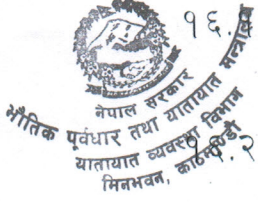 १६.
नेपाल सरकार
भौतिक पूर्वधार तथा यातायात मन्त्रालय
यातायात व्यवस्था विभाग
मिनभवन, काठमाडौं
१९.२